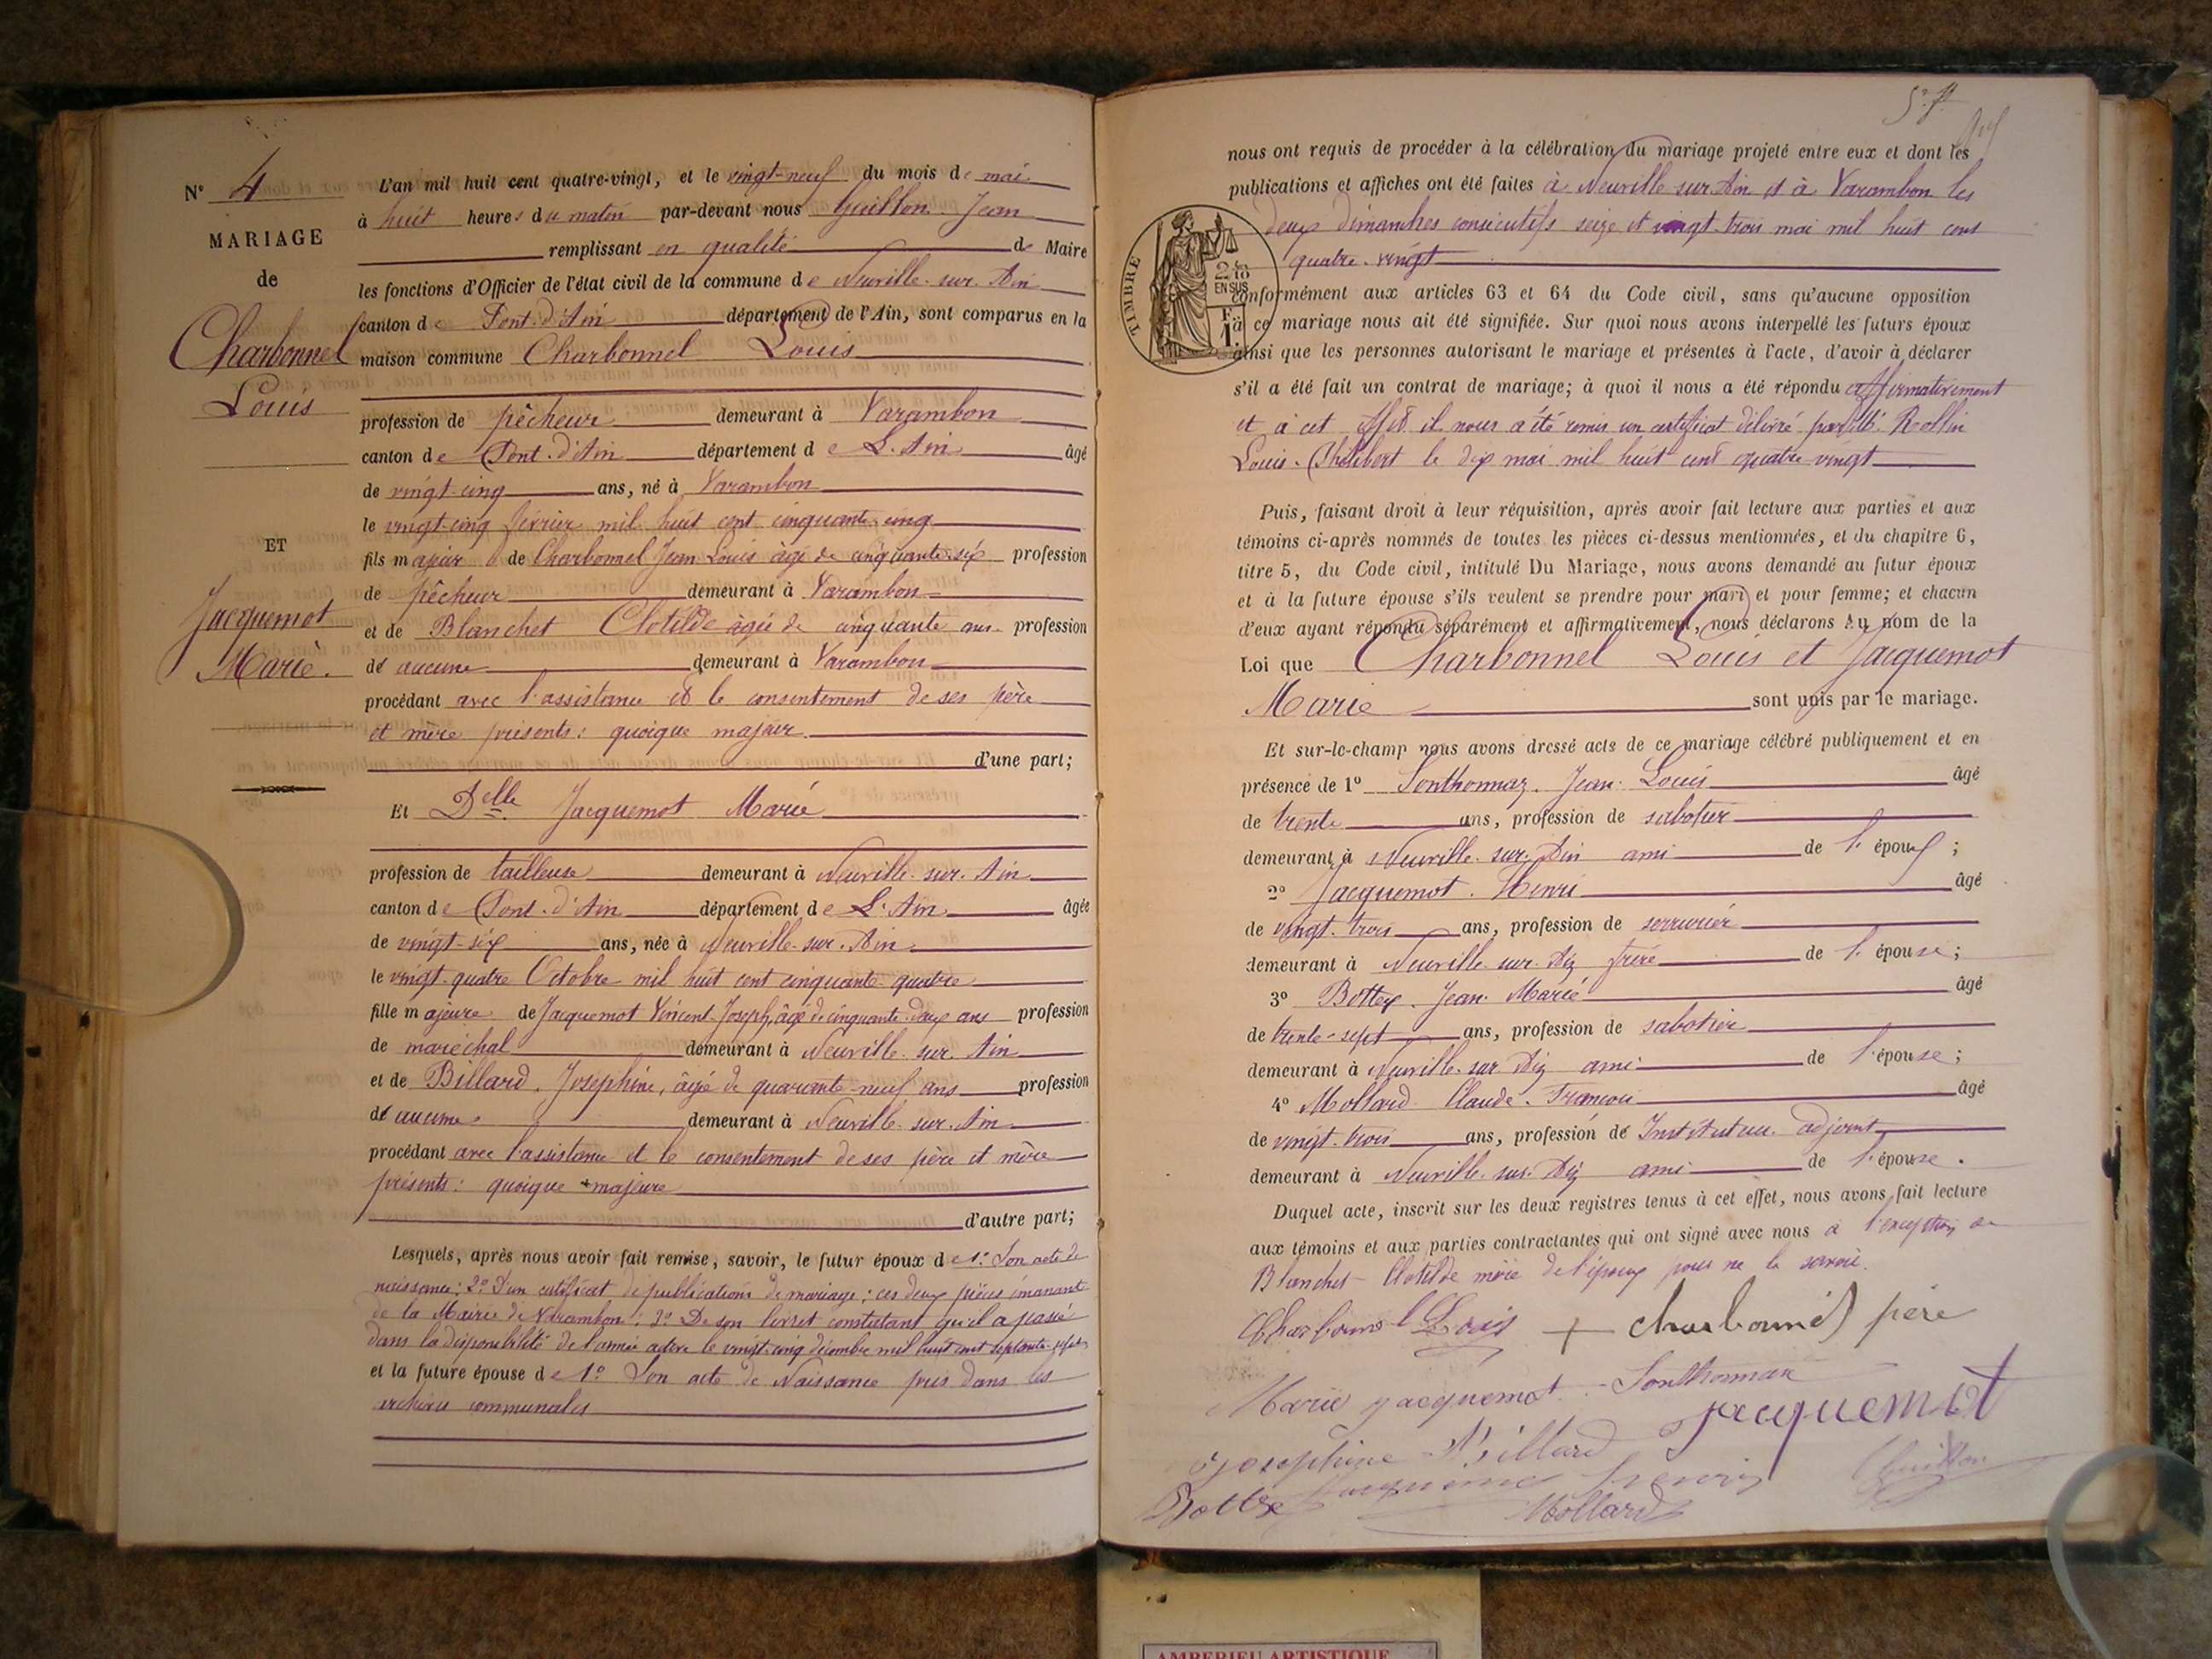 N° 4
MARIAGE
de
Charbonnel
Louis
ET
Jacquemot
Marie.
L'an mil huit cent quatre-vingt, et le vingt-neuf du mois de mai
à huit heures du matin par-devant nous Guillon Jean
remplissant en qualité de Maire
les fonctions d'Officier de l'état civil de la commune de Neuville sur Ain
canton de Pont d'Ain département de l'Ain, sont comparus en la
maison commune Charbonnel Louis
profession de pêcheur demeurant à Varambon
canton de Pont d'Ain département de L'Ain âgé
de vingt-cinq ans, né à Varambon
le vingt-cinq février mil huit cent cinquante-cinq
fils majeur de Charbonnel Jean Louis âgé de cinquante-six profession
de pêcheur demeurant à Varambon
et de Blanchet Clotilde âgée de cinquante ans profession
de aucune demeurant à Varambon
procédant avec l'assistance et le consentement de ses père
et mère présents: quoique majeur
d'une part;
Et Delle Jacquemot Marie
profession de tailleuse demeurant à Neuville sur Ain
canton de Pont d'Ain département de L'Ain âgée
de vingt-six ans, née à Neuville sur Ain
le vingt-quatre Octobre mil huit cent cinquante-quatre
fille majeure de Jacquemot Vincent Joseph, âgé de cinquante-deux ans profession
de maréchal demeurant à Neuville sur Ain
et de Billard, Josephine, âgée de quarante neuf ans profession
de aucune demeurant à Neuville sur Ain
procédant avec l'assistance et le consentement de ses père et mère
présents: quoique majeure
d'autre part;
Lesquels, après nous avoir fait remise, savoir, le futur époux de 1° Son acte de
naissance; 2° D'un certificat de publications de mariage; ces deux pièces émanant
de la Mairie de Varambon; 3° De son livret constatant qu'il a passé
dans la disponibilité de l'armée active le vingt-cinq décembre mil huit cent septante-sept
et la future épouse de 1° Son acte de Naissance pris dans les
archives communales
nous ont requis de procéder à la célébration du mariage projeté entre eux et dont les
publications et affiches ont été faites à Neuville sur Ain et à Varambon les
deux dimanches consécutifs seize et vingt-trois mai mil huit cent
quatre-vingt
TIMBRE
EN SUS
conformément aux articles 63 et 64 du Code civil, sans qu'aucune opposition
à ce mariage nous ait été signifiée. Sur quoi nous avons interpellé les futurs époux
ainsi que les personnes autorisant le mariage et présentes à l'acte, d'avoir à déclarer
s'il a été fait un contrat de mariage; à quoi il nous a été répondu affirmativement
et à cet effet il nous a été remis un certificat délivré par Rollin
Louis le dix mai mil huit cent quatre vingt
Puis, faisant droit à leur réquisition, après avoir fait lecture aux parties et aux
témoins ci-après nommés de toutes les pièces ci-dessus mentionnées, et du chapitre 6,
titre 5, du Code civil, intitulé Du Mariage, nous avons demandé au futur époux
et à la future épouse s'ils veulent se prendre pour mari et pour femme; et chacun
d'eux ayant répondu séparément et affirmativement, nous déclarons au nom de la
Loi que Charbonnel Louis et Jacquemot
Marie sont unis par le mariage.
Et sur-le-champ nous avons dressé acte de ce mariage célébré publiquement et en
présence de 1° Sonthonnaz Jean Louis âgé
de trente ans, profession de sabotier
demeurant à Neuville sur Ain ami de l'époux;
2° Jacquemot Henri âgé
de vingt-trois ans, profession de serrurier
demeurant à Neuville sur Ain frère de l'épouse;
3° Bottex Jean Marie âgé
de trente-sept ans, profession de sabotier
demeurant à Neuville sur Ain ami de l'épouse;
4° Mollard Claude François âgé
de vingt-trois ans, profession de Instituteur adjoint
demeurant à Neuville sur Ain ami de l'épouse.
Duquel acte, inscrit sur les deux registres tenus à cet effet, nous avons fait lecture
aux témoins et aux parties contractantes qui ont signé avec nous à l'exception de
Blanchet Clotilde mère de l'époux pour ne le savoir.
Charbonnel Louis + charbonnel père
Marie Jacquemot Sonthonnax
Jacquemot
Josephine Billard
Jacquemot henri Guillon
Bottex Mollard
AMBERIEU ARTISTIQUE